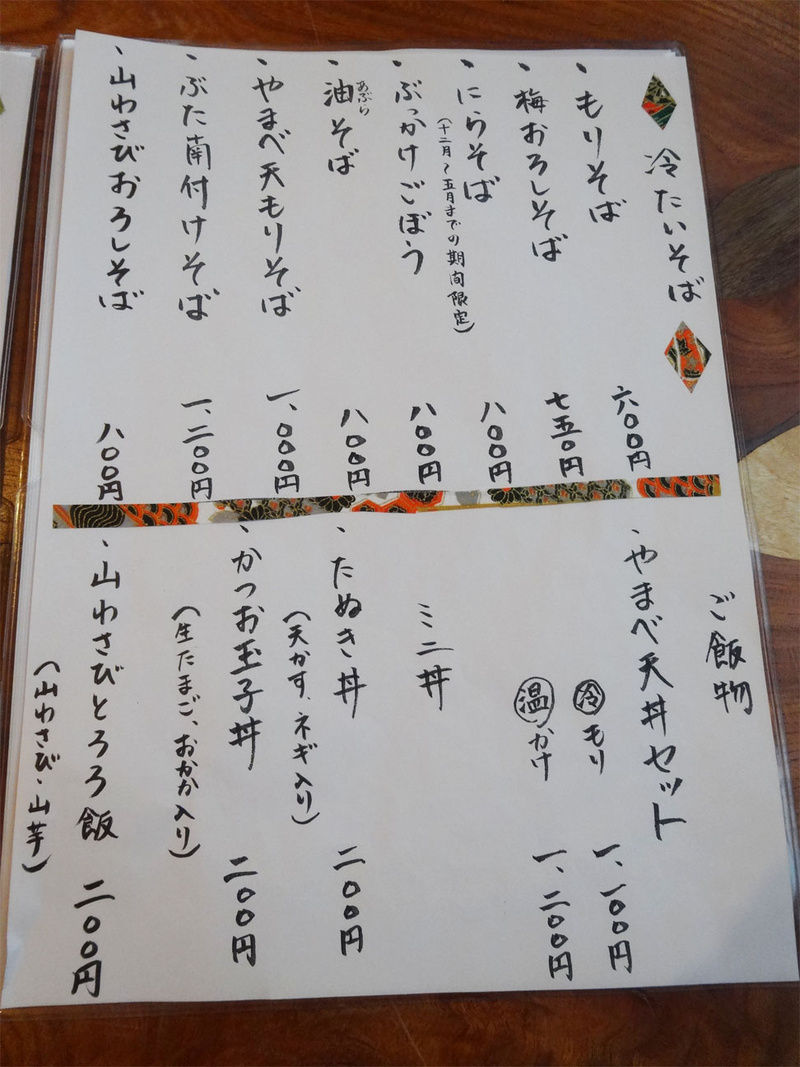 冷たいそば
・もりそば 六〇〇円
・梅おろしそば 七五〇円
・にらそば 八〇〇円
(十二月〜五月までの期間限定)
・ぶっかけごぼう 八〇〇円
・油そば 八〇〇円
あぶら
・やまべ天もりそば 一、〇〇〇円
・ぶた南付けそば 一、二〇〇円
・山わさびおろしそば 八〇〇円
ご飯物
・やまべ天丼セット
冷 もり 一、一〇〇円
温 かけ 一、二〇〇円
ミニ丼
・たぬき丼 二〇〇円
(天かす、ネギ入り)
・かつお玉子丼 二〇〇円
(生たまご、おかか入り)
・山わさびとろろ飯 二〇〇円
(山わさび・山芋)